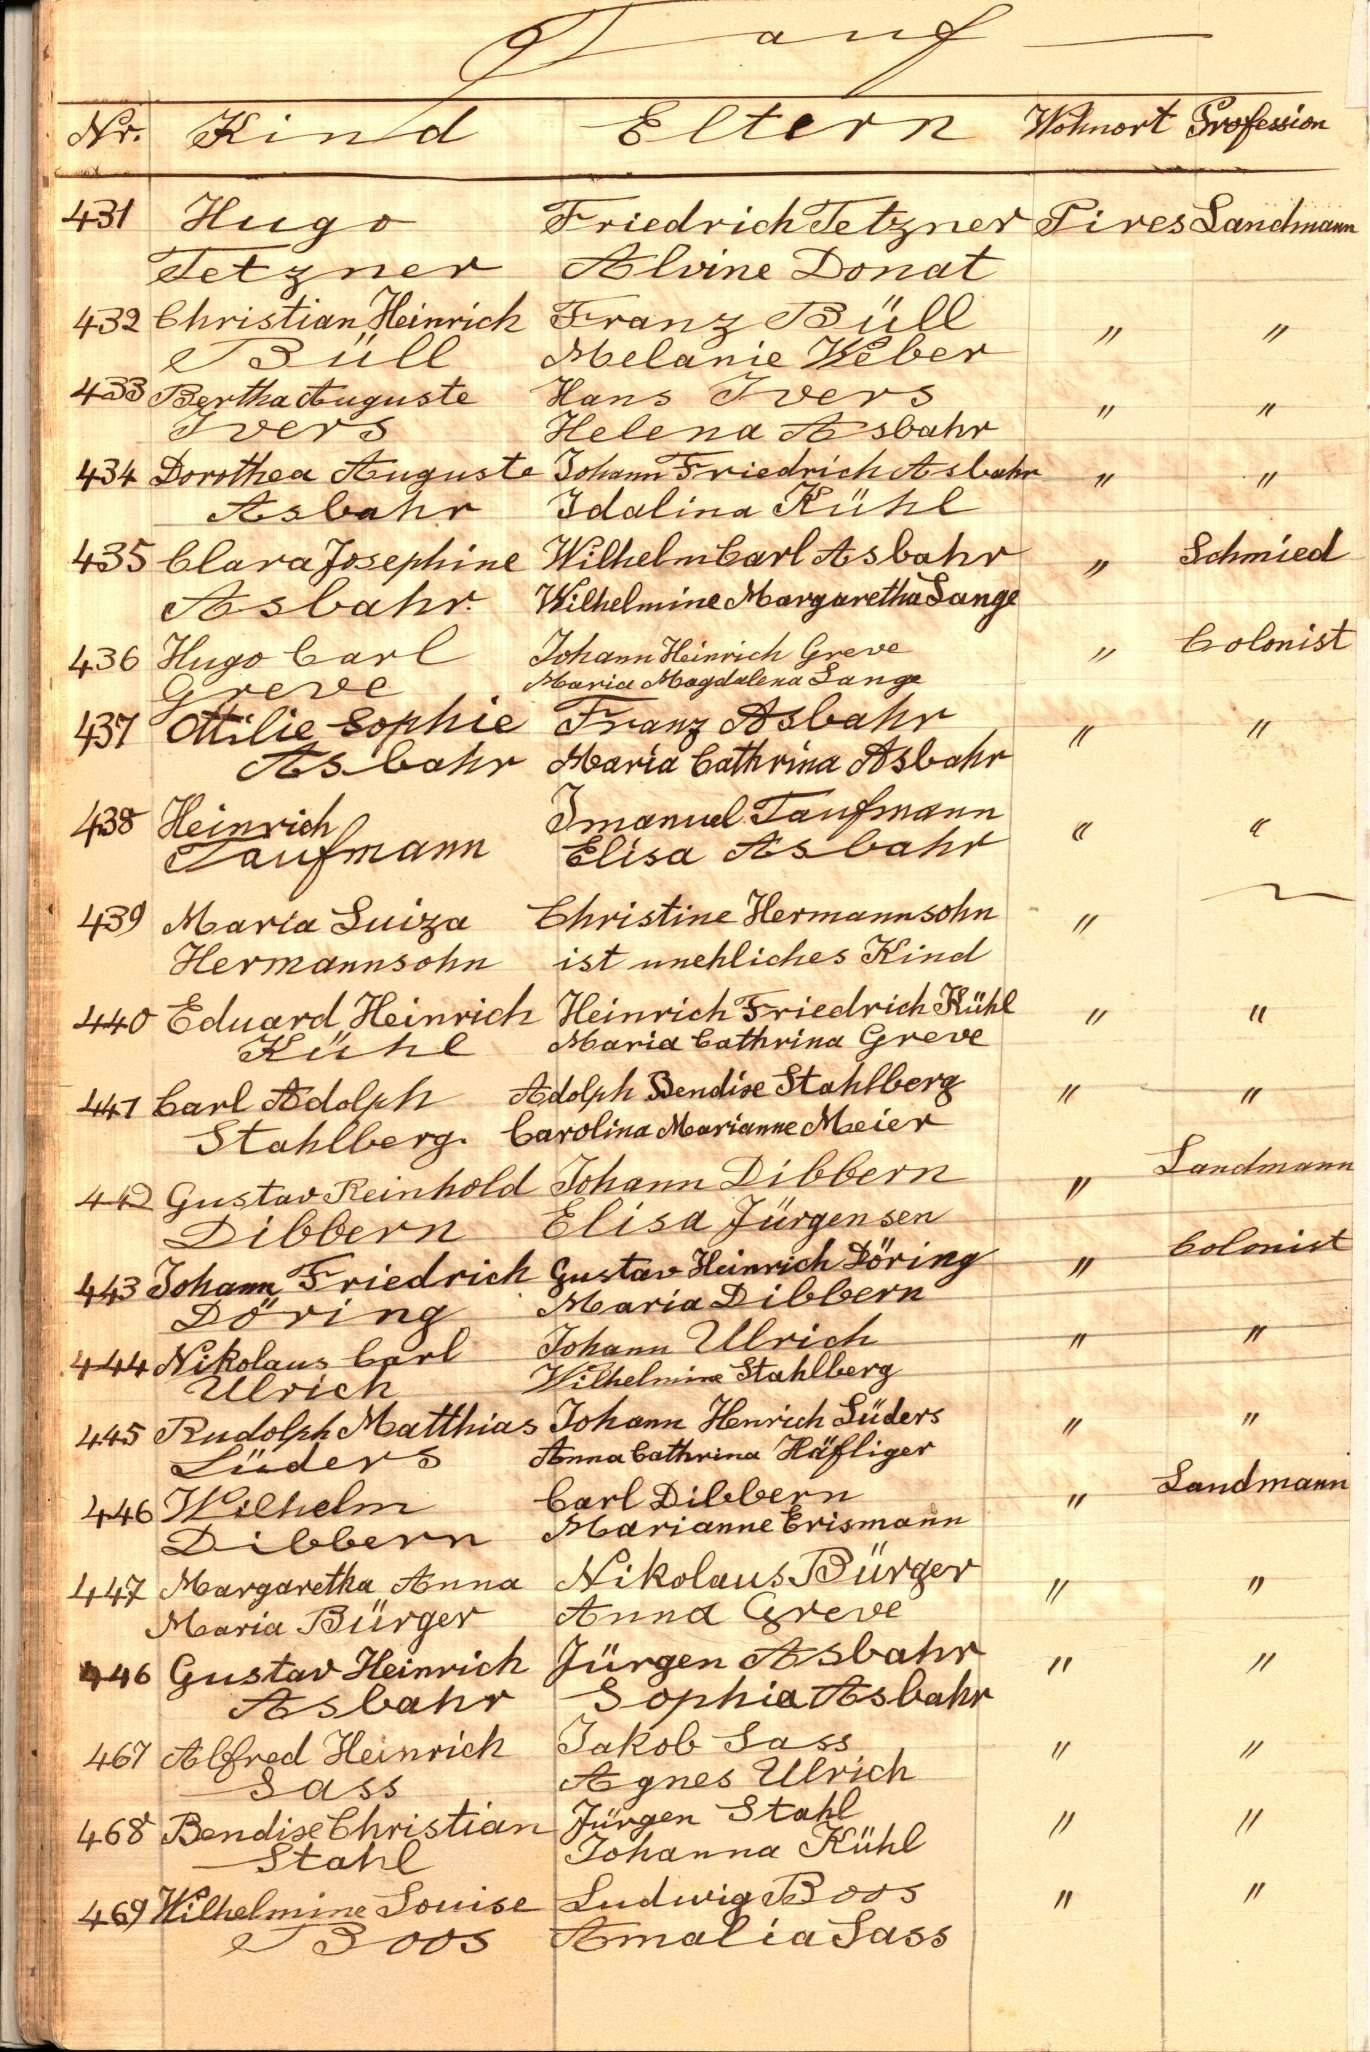 Tauf
Nr. Kind Eltern Wohnort Profession
431 Hugo Friedrich Tetzner Pires Landmann
Tetzner Alvine Donat
432 Christian Heinrich Franz Büll " "
Büll Melanie Weber
433 Bertha Auguste Hans Ivers " "
Ivers Helena Asbahr
434 Dorothea Auguste Johann Friedrich Asbahr " "
Asbahr Idalina Kühl
435 Clara Josephine Wilhelm Carl Asbahr " Schmied
Asbahr. Wilhelmine Margaretha Lange
436 Hugo Carl Johann Heinrich Greve " Colonist
Greve Maria Magdalena Lange
437 Ottilie Sophie Franz Asbahr " "
Asbahr Maria Cathrina Asbahr
438 Heinrich Imanuel Taufmann " "
Taufmann Elisa Asbahr
439 Maria Luiza Christine Hermannsohn "
Hermannsohn ist unehliches Kind
440 Eduard Heinrich Heinrich Friedrich Kühl " "
Kühl Maria Cathrina Greve
441 Carl Adolph Adolph Bendixe Stahlberg " "
Stahlberg. Carolina Marianne Meier
442 Gustav Reinhold Johann Dibbern " Landmann
Dibbern Elisa Jürgensen
443 Johann Friedrich Gustav Heinrich Döring " Colonist
Döring Maria Dibbern
444 Nikolaus Carl Johann Ulrich " "
Ulrich Wilhelmine Stahlberg
445 Rudolph Matthias Johann Henrich Lüders " "
Lüders Anna Cathrina Häfliger
446 Wilhelm Carl Dibbern " Landmann
Dibbern Marianne Erismann
447 Margaretha Anna Nikolaus Bürger " "
Maria Bürger Anna Greve
446 Gustav Heinrich Jürgen Asbahr " "
Asbahr Sophia Asbahr
467 Alfred Heinrich Jakob Sass " "
Sass Agnes Ulrich
468 Bendixe Christian Jürgen Stahl " "
Stahl Johanna Kühl
469 Wilhelmine Louise Ludwig Boos " "
Boos Amalia Sass